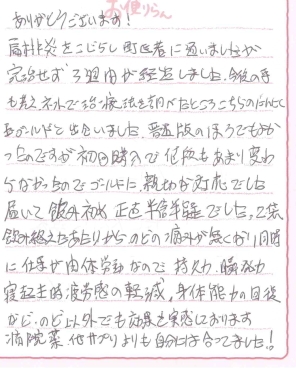 お便りらん
ありがとうございます！
扁桃炎をこじらし町医者に通いましたが
完治せず3週間が経過しました。今後の事
も考えネットで治療法を調べたところこちらのにんにく
玉ゴールドと出会いました。普通版のほうでもよか
ったのですが初回購入で値段もあまり変わ
らなかったのでゴールドに、親切な対応でした
届いて飲み初め正直半信半疑でした。2袋
飲み終えたあたりからのどの痛みが無くなり同時
に仕事が肉体労働なので持久力、瞬発力
寝起き時疲労感の軽減、身体能力の回復
など、のど以外でも効果を実感しております
病院薬 他サプリよりも自分には合ってました！